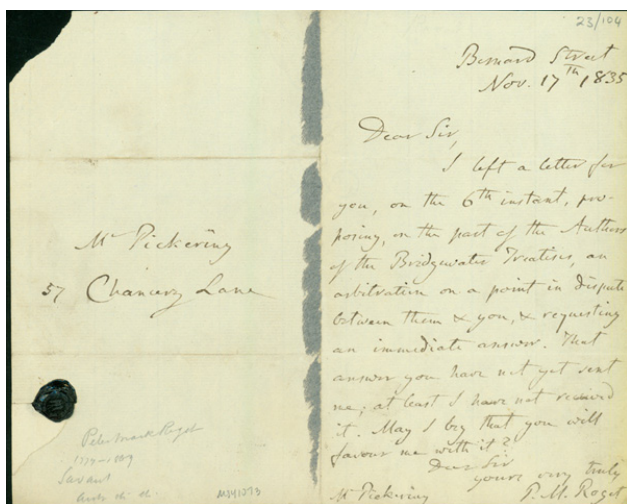 Mr Pickering
57 Chancery Lane
Peter Mark Roget
1779-1869
Savant
23/104
Bernard Street
Nov. 17th 1835
Dear Sir,
I left a letter for
you, on the 6th instant, pro-
posing, on the part of the Authors
of the Bridgewater Treatises, an
arbitration on a point in dispute
between them & you, & requesting
an immediate answer. That
answer you have not yet sent
me; at least I have not received
it. May I beg that you will
favour me with it?
Dear Sir
yours very truly
Mr Pickering P. M. Roget